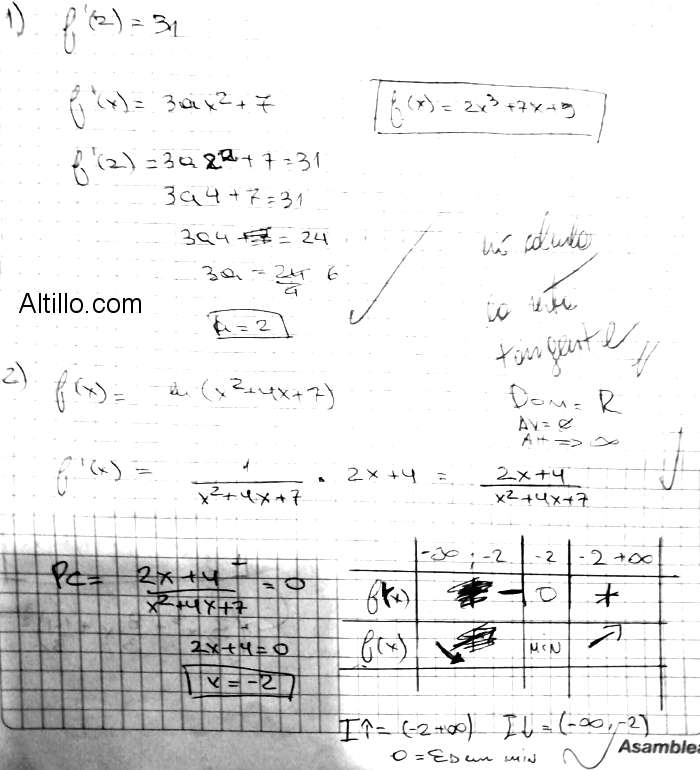 1) f'(2) = 31
f'(x) = 3ax² + 7
f(x) = 2x³+7x+9
f'(2) = 3a2² + 7 = 31
3a4 + 7 = 31
3a4 = 24
3a = 24/4 6
a = 2
Altillo.com
tangente
2) f(x) = (x²+4x+7)
Dom = R
AV = ∅
AH => ∞
f'(x) = 1/(x²+4x+7) · 2x+4 = (2x+4)/(x²+4x+7)
PC = (2x+4)/(x²+4x+7) = 0
2x+4=0
x = -2
-∞ ; -2 | -2 | -2 +∞
f'(x) | - | 0 | +
f(x) | ↘ | MIN | ↗
I↑ = (-2 +∞) I↓ = (-∞, -2)
min
Asamblea